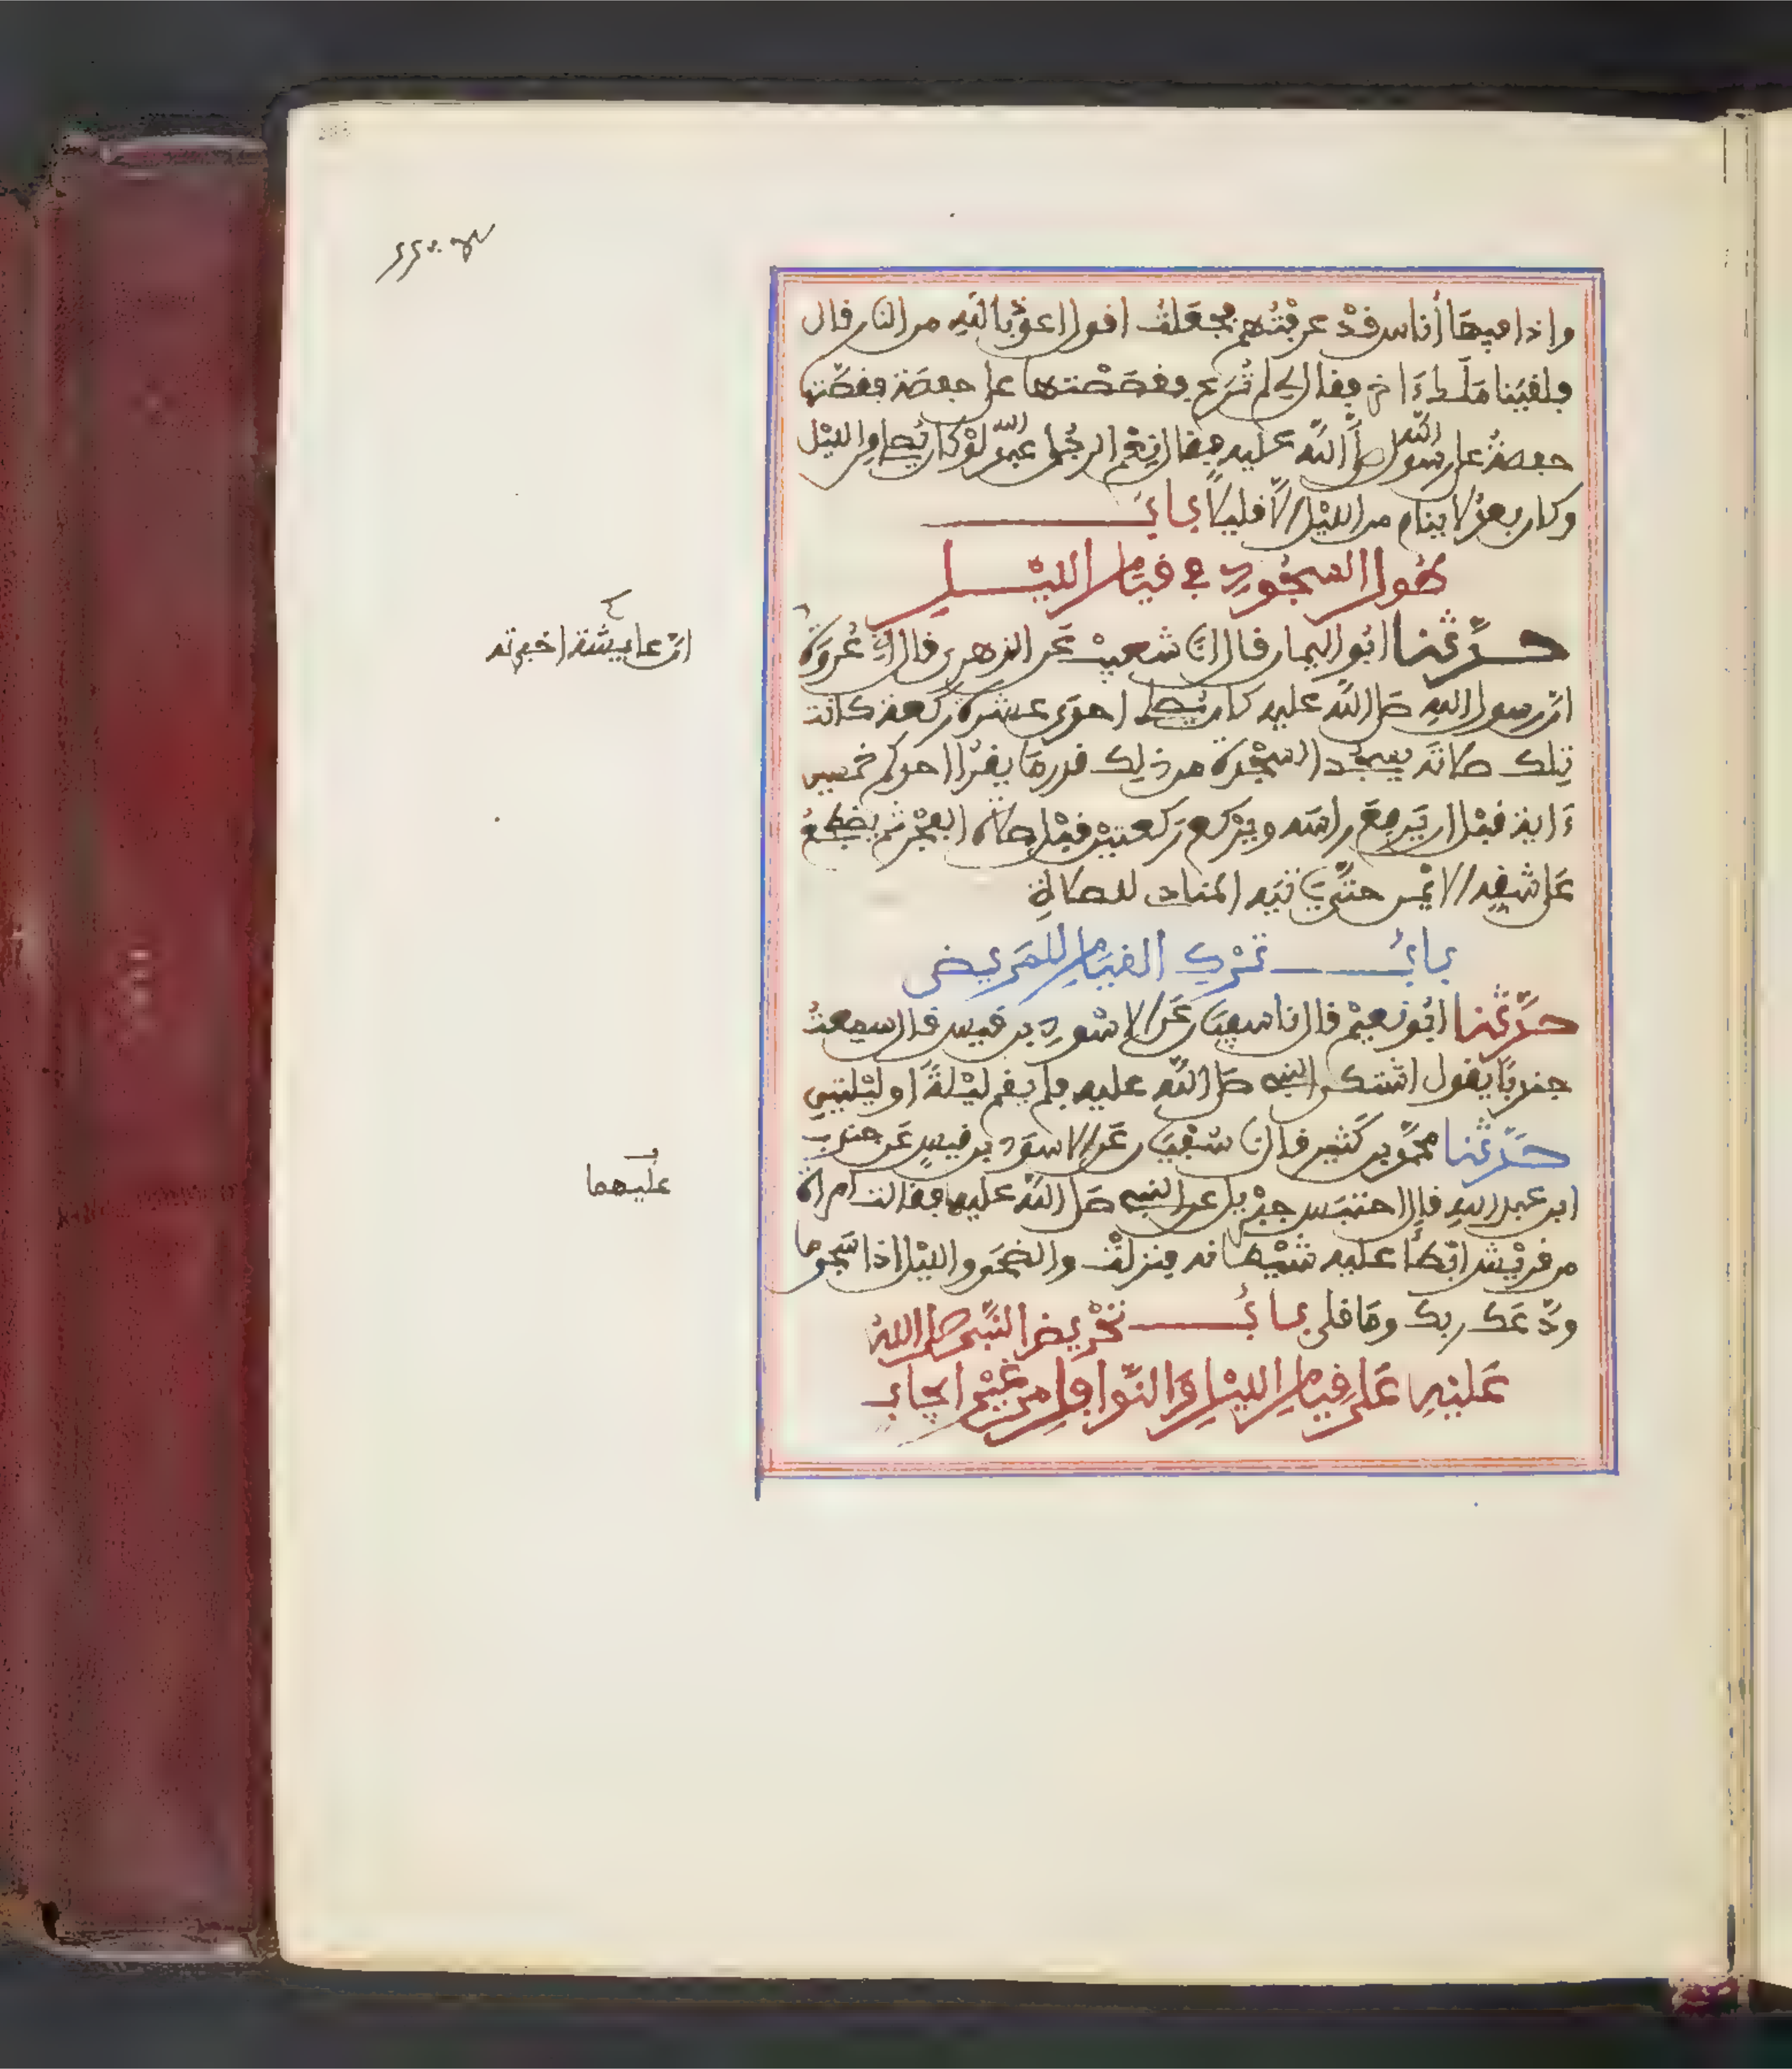 واذا فيها أناس قد عرفتهم فجعلت اقول اعوذ بالله من النار قال
فلقينا ملك ءاخر فقال لي لم ترع فقصصتها على حفصة فقصتها
حفصة على رسول الله صلى الله عليه فقال نعم الرجل عبد الله لو كان يصلي من الليل
وكان بعد لا ينام من الليل الا قليلا باب
طول السجود في قيام الليل
حدثنا ابو اليمان قال انا شعيب عن الزهري قال اني عروة
ان رسول الله صلى الله عليه كان يصلي احدى عشرة ركعة كانت
تلك صلاته يسجد السجدة من ذلك قدر ما يقرأ احدكم خمسين
ءاية قبل ان يرفع راسه ويركع ركعتين قبل صلاة الفجر ثم يضطجع
على شقه الايمن حتى ياتيه المنادي للصلاة
باب ترك القيام للمريض
حدثنا ابو نعيم قال نا سفيان عن الاسود بن قيس قال سمعت
جندبا يقول اشتكى النبي صلى الله عليه فلم يقم ليلة او ليلتين
حدثنا محمد بن كثير قال انا سفيان عن الاسود بن قيس عن جندب
ابن عبد الله قال احتبس جبريل عن النبي صلى الله عليهما فقالت امراة
من قريش ابطأ عليه شيطانه فنزلت والضحى والليل اذا سجى ما
ودعك ربك وما قلى باب تحريض النبي صلى الله
عليه على قيام الليل والنوافل من غير ايجاب
ان عايشة اخبرته
عليهما